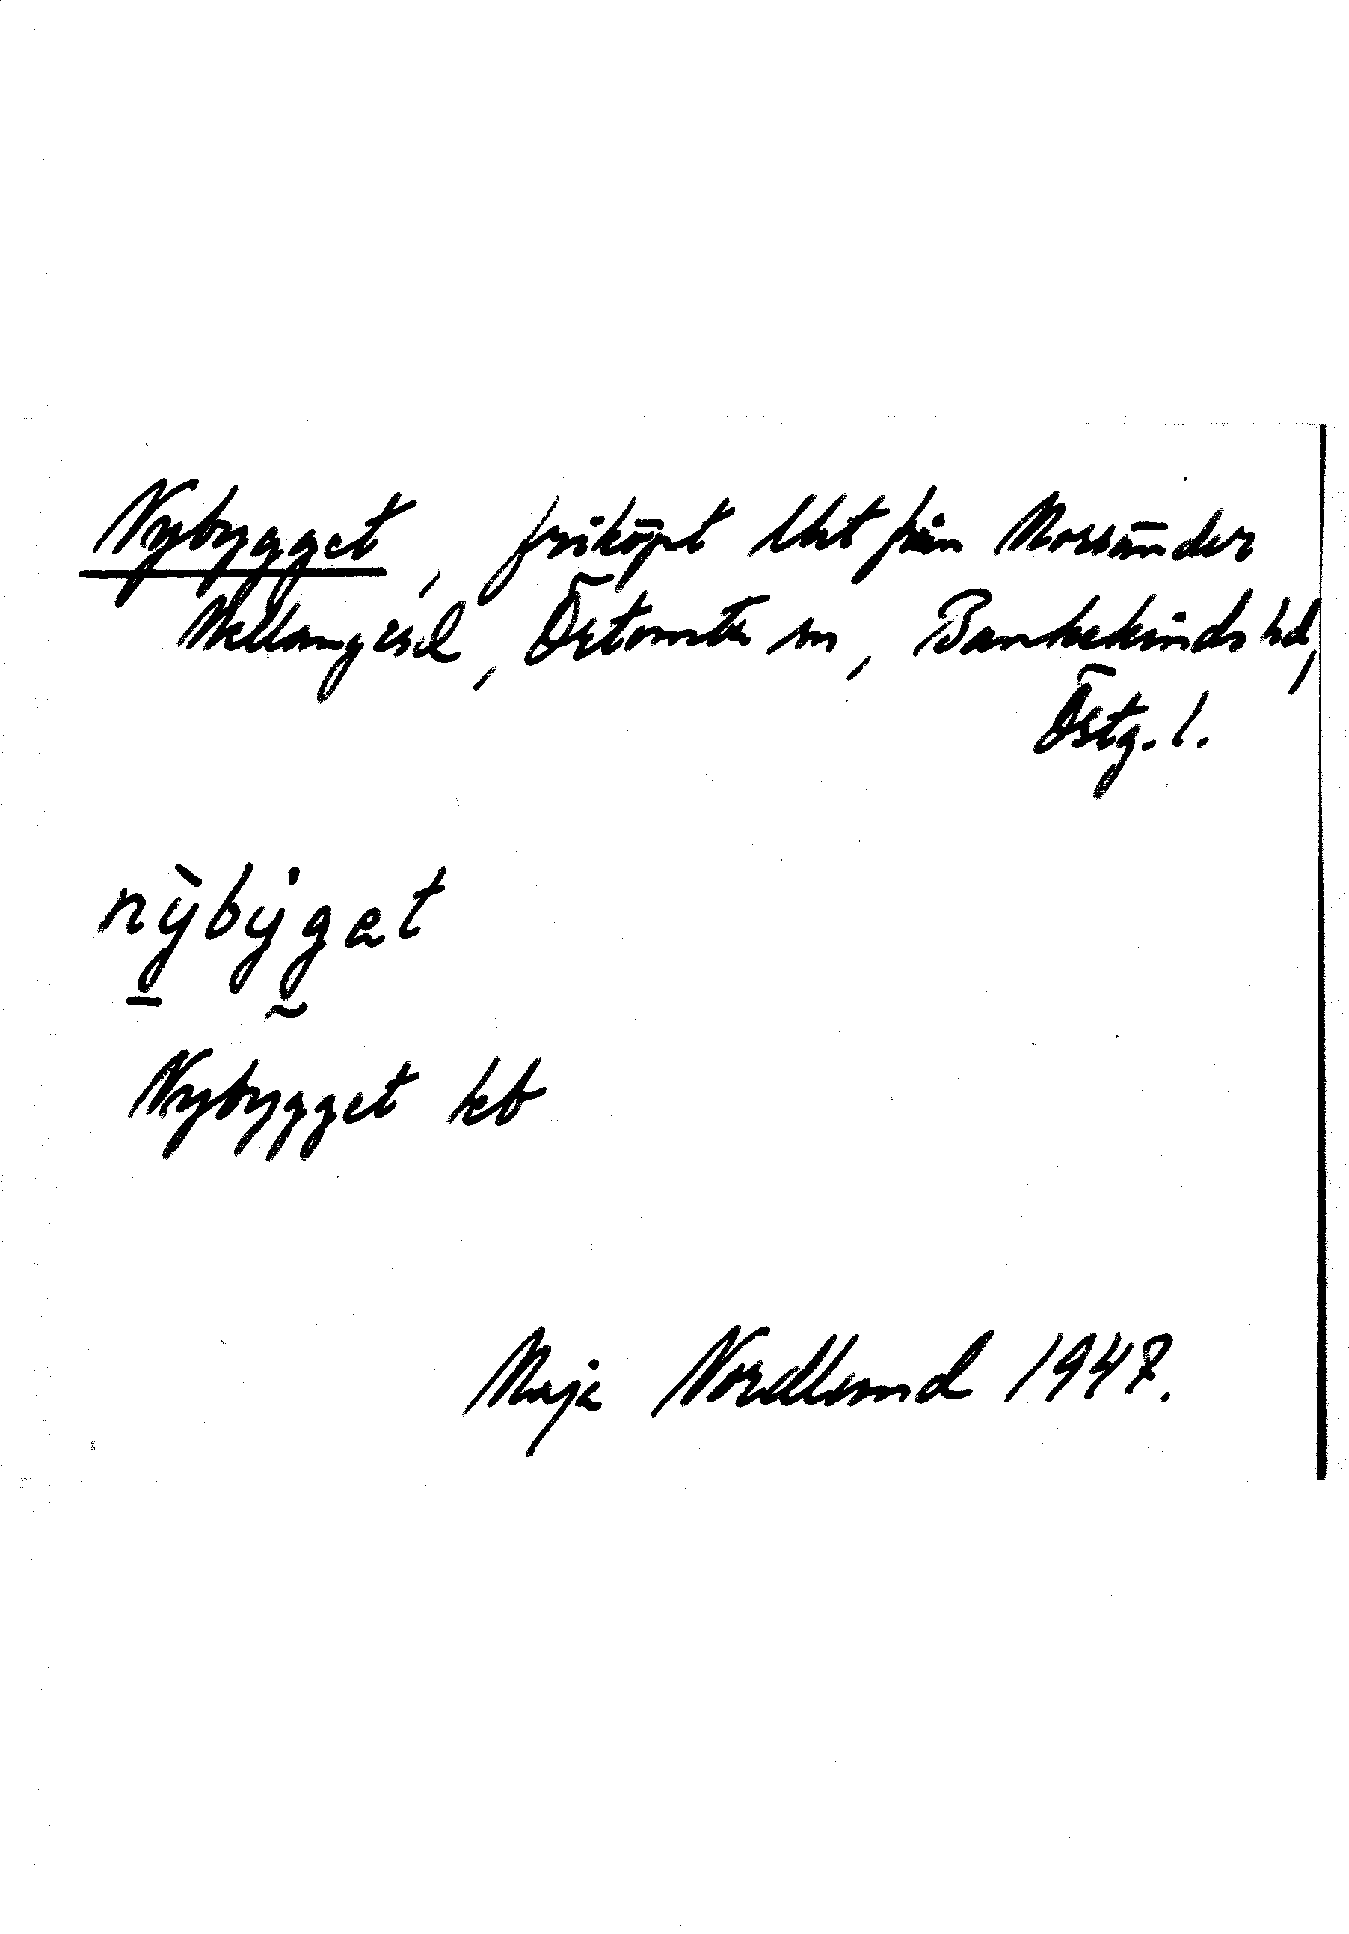 Nybygget, friköpt lht från Morsänder
Mellangård, Örtomta sn, Bankekinds hd,
Östg. l.
nỳbyget
Nybygget kb
Maja Nordlund 1947.